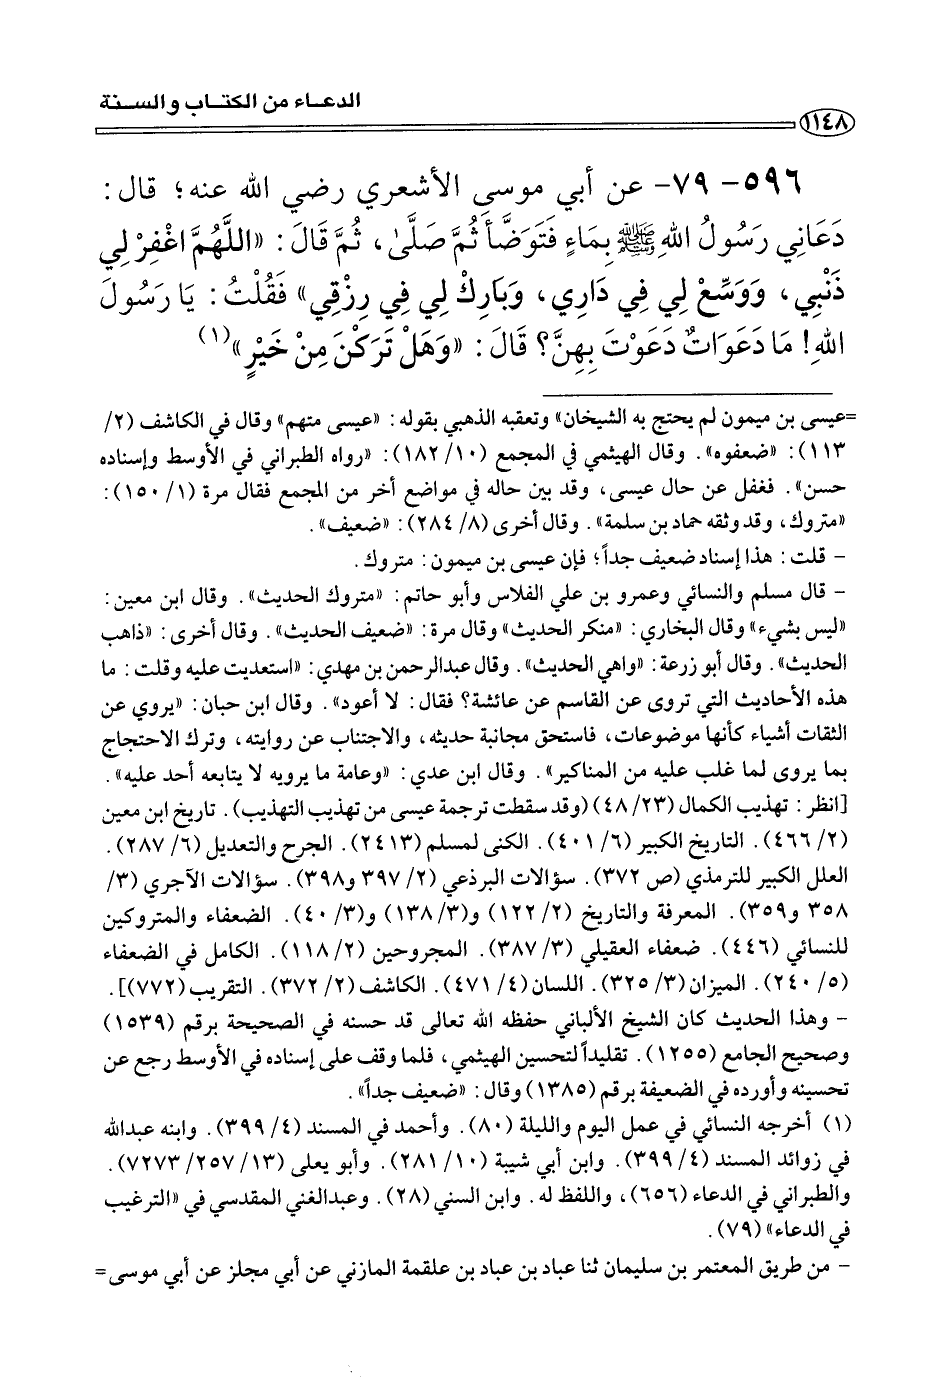 الدعاء من الكتاب والسنة
١١٤٨
٥٩٦- ٧٩- عن أبي موسى الأشعري رضي الله عنه؛ قال:
دَعَانِي رَسُولُ اللهِ ﷺ بِمَاءٍ فَتَوَضَّأَ ثُمَّ صَلَّىٰ، ثُمَّ قَالَ: «اللَّهُمَّ اغْفِرْ لِي
ذَنْبِي، وَوَسِّعْ لِي فِي دَارِي، وَبَارِكْ لِي فِي رِزْقِي» فَقُلْتُ: يَا رَسُولَ
اللهِ! مَا دَعَوَاتٌ دَعَوْتَ بِهِنَّ؟ قَالَ: «وَهَلْ تَرَكْنَ مِنْ خَيْرٍ»(١)
=عيسى بن ميمون لم يحتج به الشيخان» وتعقبه الذهبي بقوله: «عيسى متهم» وقال في الكاشف (٢/
١١٣): «ضعفوه». وقال الهيثمي في المجمع (١٠/ ١٨٢): «رواه الطبراني في الأوسط وإسناده
حسن». فغفل عن حال عيسى، وقد بين حاله في مواضع أخر من المجمع فقال مرة (١/ ١٥٠):
«متروك، وقد وثقه حماد بن سلمة». وقال أخرى (٨/ ٢٨٤): «ضعيف».
- قلت: هذا إسناد ضعيف جداً؛ فإن عيسى بن ميمون: متروك.
- قال مسلم والنسائي وعمرو بن علي الفلاس وأبو حاتم: «متروك الحديث». وقال ابن معين:
«ليس بشيء» وقال البخاري: «منكر الحديث» وقال مرة: «ضعيف الحديث». وقال أخرى: «ذاهب
الحديث». وقال أبو زرعة: «واهي الحديث». وقال عبدالرحمن بن مهدي: «استعديت عليه وقلت: ما
هذه الأحاديث التي تروى عن القاسم عن عائشة؟ فقال: لا أعود». وقال ابن حبان: «يروي عن
الثقات أشياء كأنها موضوعات، فاستحق مجانبة حديثه، والاجتناب عن روايته، وترك الاحتجاج
بما يروى لما غلب عليه من المناكير». وقال ابن عدي: «وعامة ما يرويه لا يتابعه أحد عليه».
[انظر: تهذيب الكمال (٢٣/ ٤٨) (وقد سقطت ترجمة عيسى من تهذيب التهذيب). تاريخ ابن معين
(٢/ ٤٦٦). التاريخ الكبير (٦/ ٤٠١). الكنى لمسلم (٢٤١٣). الجرح والتعديل (٦/ ٢٨٧).
العلل الكبير للترمذي (ص ٣٧٢). سؤالات البرذعي (٢/ ٣٩٧ و٣٩٨). سؤالات الآجري (٣/
٣٥٨ و٣٥٩). المعرفة والتاريخ (٢/ ١٢٢) و(٣/ ١٣٨) و(٣/ ٤٠). الضعفاء والمتروكين
للنسائي (٤٤٦). ضعفاء العقيلي (٣/ ٣٨٧). المجروحين (٢/ ١١٨). الكامل في الضعفاء
(٥/ ٢٤٠). الميزان (٣/ ٣٢٥). اللسان (٤/ ٤٧١). الكاشف (٢/ ٣٧٢). التقريب (٧٧٢)].
- وهذا الحديث كان الشيخ الألباني حفظه الله تعالى قد حسنه في الصحيحة برقم (١٥٣٩)
وصحيح الجامع (١٢٥٥). تقليداً لتحسين الهيثمي، فلما وقف على إسناده في الأوسط رجع عن
تحسينه وأورده في الضعيفة برقم (١٣٨٥) وقال: «ضعيف جداً».
(١) أخرجه النسائي في عمل اليوم والليلة (٨٠). وأحمد في المسند (٤/ ٣٩٩). وابنه عبدالله
في زوائد المسند (٤/ ٣٩٩). وابن أبي شيبة (١٠/ ٢٨١). وأبو يعلى (١٣/ ٢٥٧/ ٧٢٧٣).
والطبراني في الدعاء (٦٥٦)، واللفظ له. وابن السني (٢٨). وعبدالغني المقدسي في «الترغيب
في الدعاء» (٧٩).
- من طريق المعتمر بن سليمان ثنا عباد بن عباد بن علقمة المازني عن أبي مجلز عن أبي موسى=